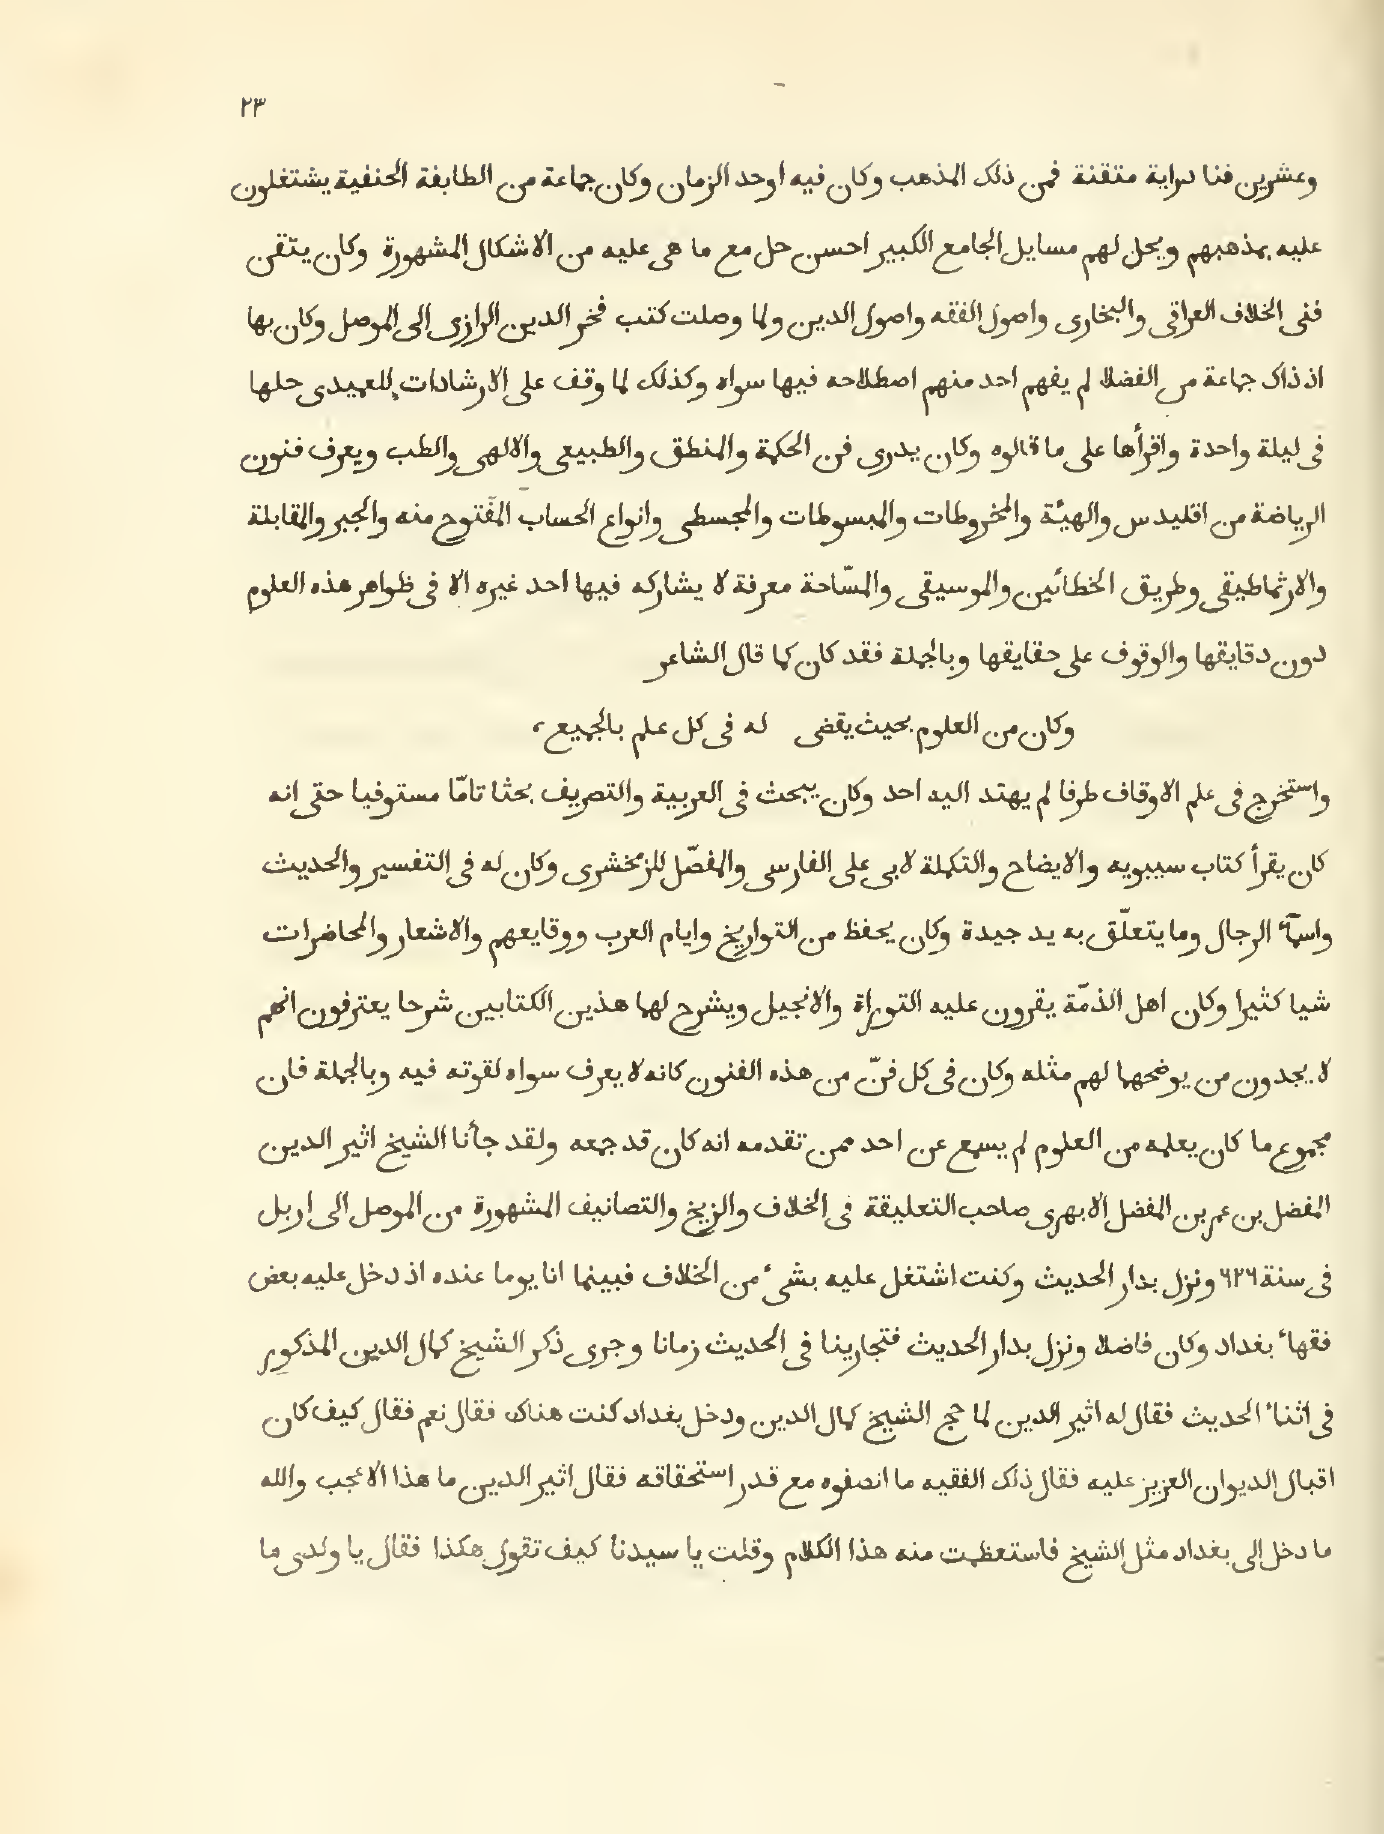 ٢٣
وعشرين فنا دراية متقنة فمن ذلك المذهب وكان فيه اوحد الزمان وكان جماعة من الطايفة الحنفية يشتغلون
عليه بمذهبهم ويحل لهم مسايل الجامع الكبير احسن حل مع ما هى عليه من الاشكال المشهورة وكان يتقن
فنى الخلاف العراقى والبخارى واصول الفقه واصول الدين ولما وصلت كتب فخر الدين الرازى الى الموصل وكان بها
اذ ذاك جماعة من الفضلا لم يفهم احد منهم اصطلاحه فيها سواه وكذلك لما وقف على الارشادات للعميدى حلها
فى ليلة واحدة واقرأها على ما قالوه وكان يدرى فن الحكمة والمنطق والطبيعى والالهى والطب ويعرف فنون
الرياضة من اقليدس والهيئة والمخروطات والمبسوطات والمجسطى وانواع الحساب المفتوح منه والجبر والمقابلة
والارثماطيقى وطريق الخطائين والموسيقى والمسّاحة معرفة لا يشاركه فيها احد غيره الا فى ظواهر هذه العلوم
دون دقايقها والوقوف على حقايقها وبالجملة فقد كان كما قال الشاعر
وكان من العلوم بحيث يقضى له فى كل علم بالجميع،
واستخرج فى علم الاوقاف طرفا لم يهتد اليه احد وكان يبحث فى العربية والتصريف بحثا تامّا مستوفيا حتى انه
كان يقرأ كتاب سيبويه والايضاح والتكملة لابى على الفارسى والمفصّل للزمخشرى وكان له فى التفسير والحديث
واسمآء الرجال وما يتعلّق به يد جيدة وكان يحفظ من التواريخ وايام العرب ووقايعهم والاشعار والمحاضرات
شيا كثيرا وكان اهل الذمّة يقرون عليه التوراة والانجيل ويشرح لهما هذين الكتابين شرحا يعترفون انهم
لا يجدون من يوضحهما لهم مثله وكان فى كل فنّ من هذه الفنون كانه لا يعرف سواه لقوته فيه وبالجملة فان
مجموع ما كان يعلمه من العلوم لم يسمع عن احد ممن تقدمه انه كان قد جمعه ولقد جأنا الشيخ اثير الدين
المفضل بن عمر بن المفضل الابهرى صاحب التعليقة فى الخلاف والزيخ والتصانيف المشهورة من الموصل الى اربل
فى سنة ٦٢٦ ونزل بدار الحديث وكنت اشتغل عليه بشىء من الخلاف فبينما انا يوما عنده اذ دخل عليه بعض
فقهاء بغداد وكان فاضلا ونزل بدار الحديث فتجارينا فى الحديث زمانا وجرى ذكر الشيخ كمال الدين المذكور
فى اثناء الحديث فقال له اثير الدين لما حج الشيخ كمال الدين ودخل بغداد كنت هناك فقال نعم فقال كيف كان
اقبال الديوان العزيز عليه فقال ذلك الفقيه ما انصفوه مع قدر استحقاقه فقال اثير الدين ما هذا الا عجب والله
ما دخل الى بغداد مثل الشيخ فاستعظمت منه هذا الكلام وقلت يا سيدنا كيف تقول هكذا فقال يا ولدى ما